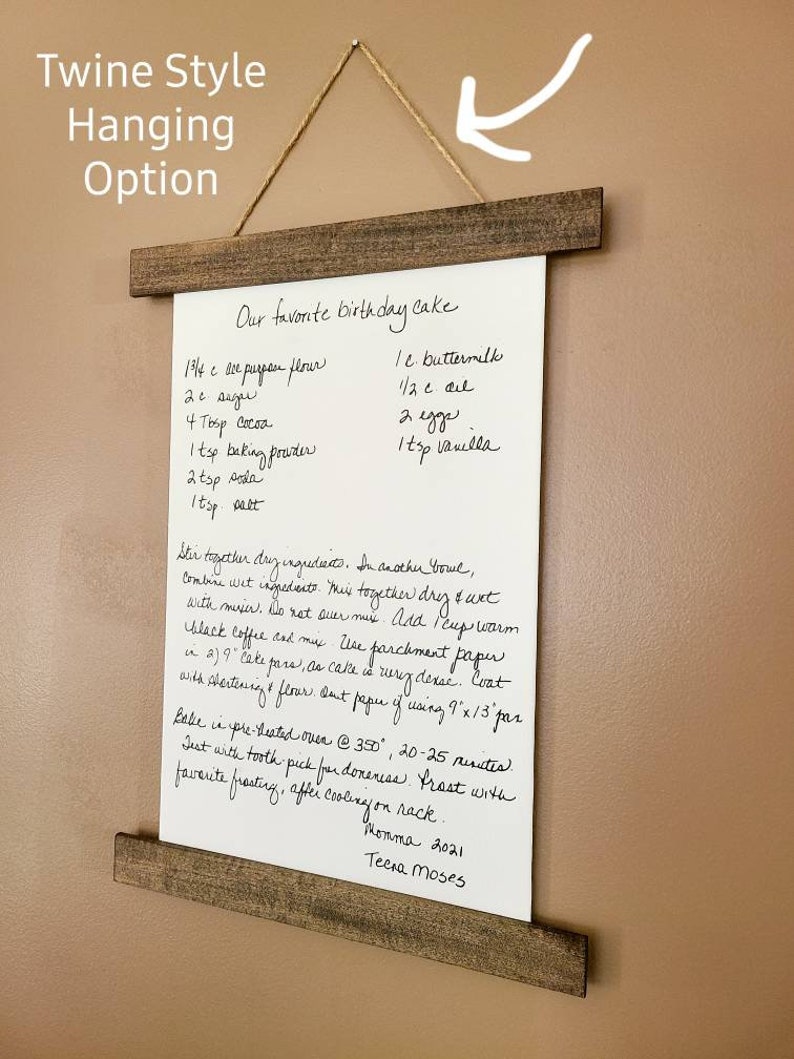 Twine Style
Hanging
Option
Our favorite birthday cake
1 3/4 c all purpose flour
2 c. sugar
4 Tbsp cocoa
1 tsp baking powder
2 tsp soda
1 tsp. salt
1 c. buttermilk
1/2 c. oil
2 eggs
1 tsp vanilla
Stir together dry ingredients. In another bowl,
combine wet ingredients. Mix together dry & wet
with mixer. Do not over mix. Add 1 cup warm
black coffee and mix. Use parchment paper
in 2) 9" cake pans, as cake is very dense. Coat
with shortening & flour. Omit paper if using 9" x 13" pan
Bake in pre-heated oven @ 350°, 20-25 minutes.
Test with tooth-pick for doneness. Frost with
favorite frosting, after cooling on rack.
Momma 2021
Teena Moses